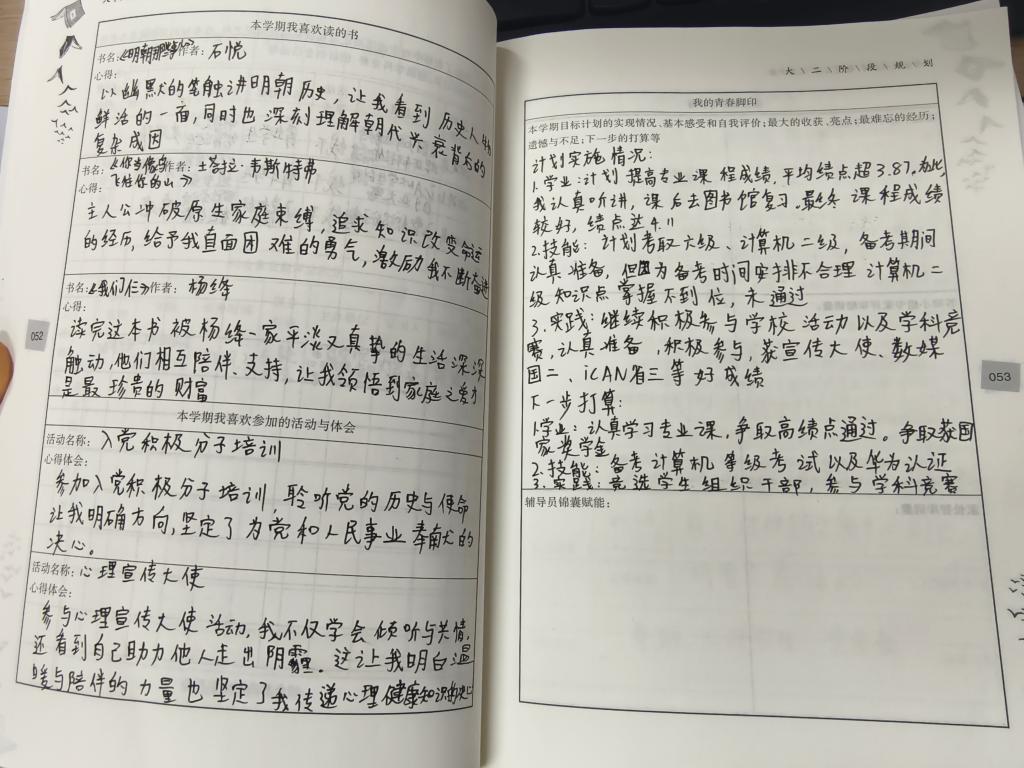 本学期我喜欢读的书
书名:《明朝那些事儿》作者: 石悦
心得:
以幽默的笔触讲明朝历史，让我看到历史人物
鲜活的一面，同时也深刻理解朝代兴衰背后的
复杂成因
书名:《你当像鸟 作者: 士塔拉·韦斯特弗
飞往你的山》
心得:
主人公冲破原生家庭束缚，追求知识改变命运
的经历，给予我直面困难的勇气，激励我不断奋进
书名:《我们仨》作者: 杨绛
心得:
读完这本书被杨绛一家平淡又真挚的生活深深
触动，他们相互陪伴、支持，让我领悟到家庭之爱才
是最珍贵的财富
本学期我喜欢参加的活动与体会
活动名称: 入党积极分子培训
心得体会:
参加入党积极分子培训，聆听党的历史与使命
让我明确方向，坚定了为党和人民事业奉献的
决心。
活动名称: 心理宣传大使
心得体会:
参与心理宣传大使活动，我不仅学会倾听与共情，
还看到自己助力他人走出阴霾。这让我明白温
暖与陪伴的力量也坚定了我传递心理健康知识的决心
052
大 \ 二 \ 阶 \ 段 \ 规 \ 划
我的青春脚印
本学期目标计划的实现情况、基本感受和自我评价;最大的收获、亮点;最难忘的经历;
遗憾与不足;下一步的打算等
计划实施情况:
1.学业:计划提高专业课程成绩，平均绩点超3.87。为此，
我认真听讲，课后去图书馆复习。最终课程成绩
较好，绩点达4.11
2.技能: 计划考取六级、计算机二级，备考期间
认真准备，但因为备考时间安排不合理 计算机二
级知识点掌握不到位，未通过
3.实践:继续积极参与学校活动以及学科竞
赛，认真准备，积极参与，获宣传大使、数媒
国二、iCAN省三等好成绩
下一步打算:
1.学业: 认真学习专业课，争取高绩点通过。争取获国
家奖学金
2.技能: 备考计算机等级考试以及华为认证
3.实践: 竞选学生组织干部，参与学科竞赛
辅导员锦囊赋能:
053